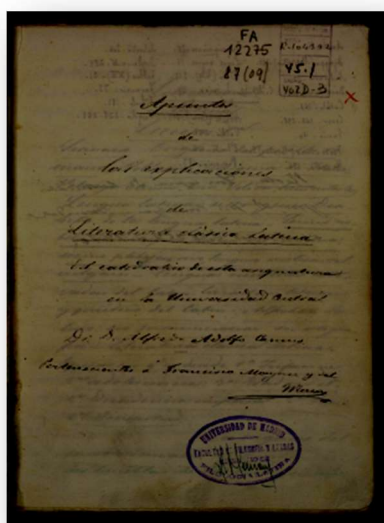 FA
12275
87(09)
VS.1
YOZD-3
X
Apuntes
de
las explicaciones
de
Literatura clásica Latina
del catedratico de esta asignatura
en la Universidad Central
Dr. D. Alfredo Adolfo Camus
Perteneciente á Francisco y del
UNIVERSIDAD DE MADRID
FACULTAD FILOSOFIA Y LETRAS